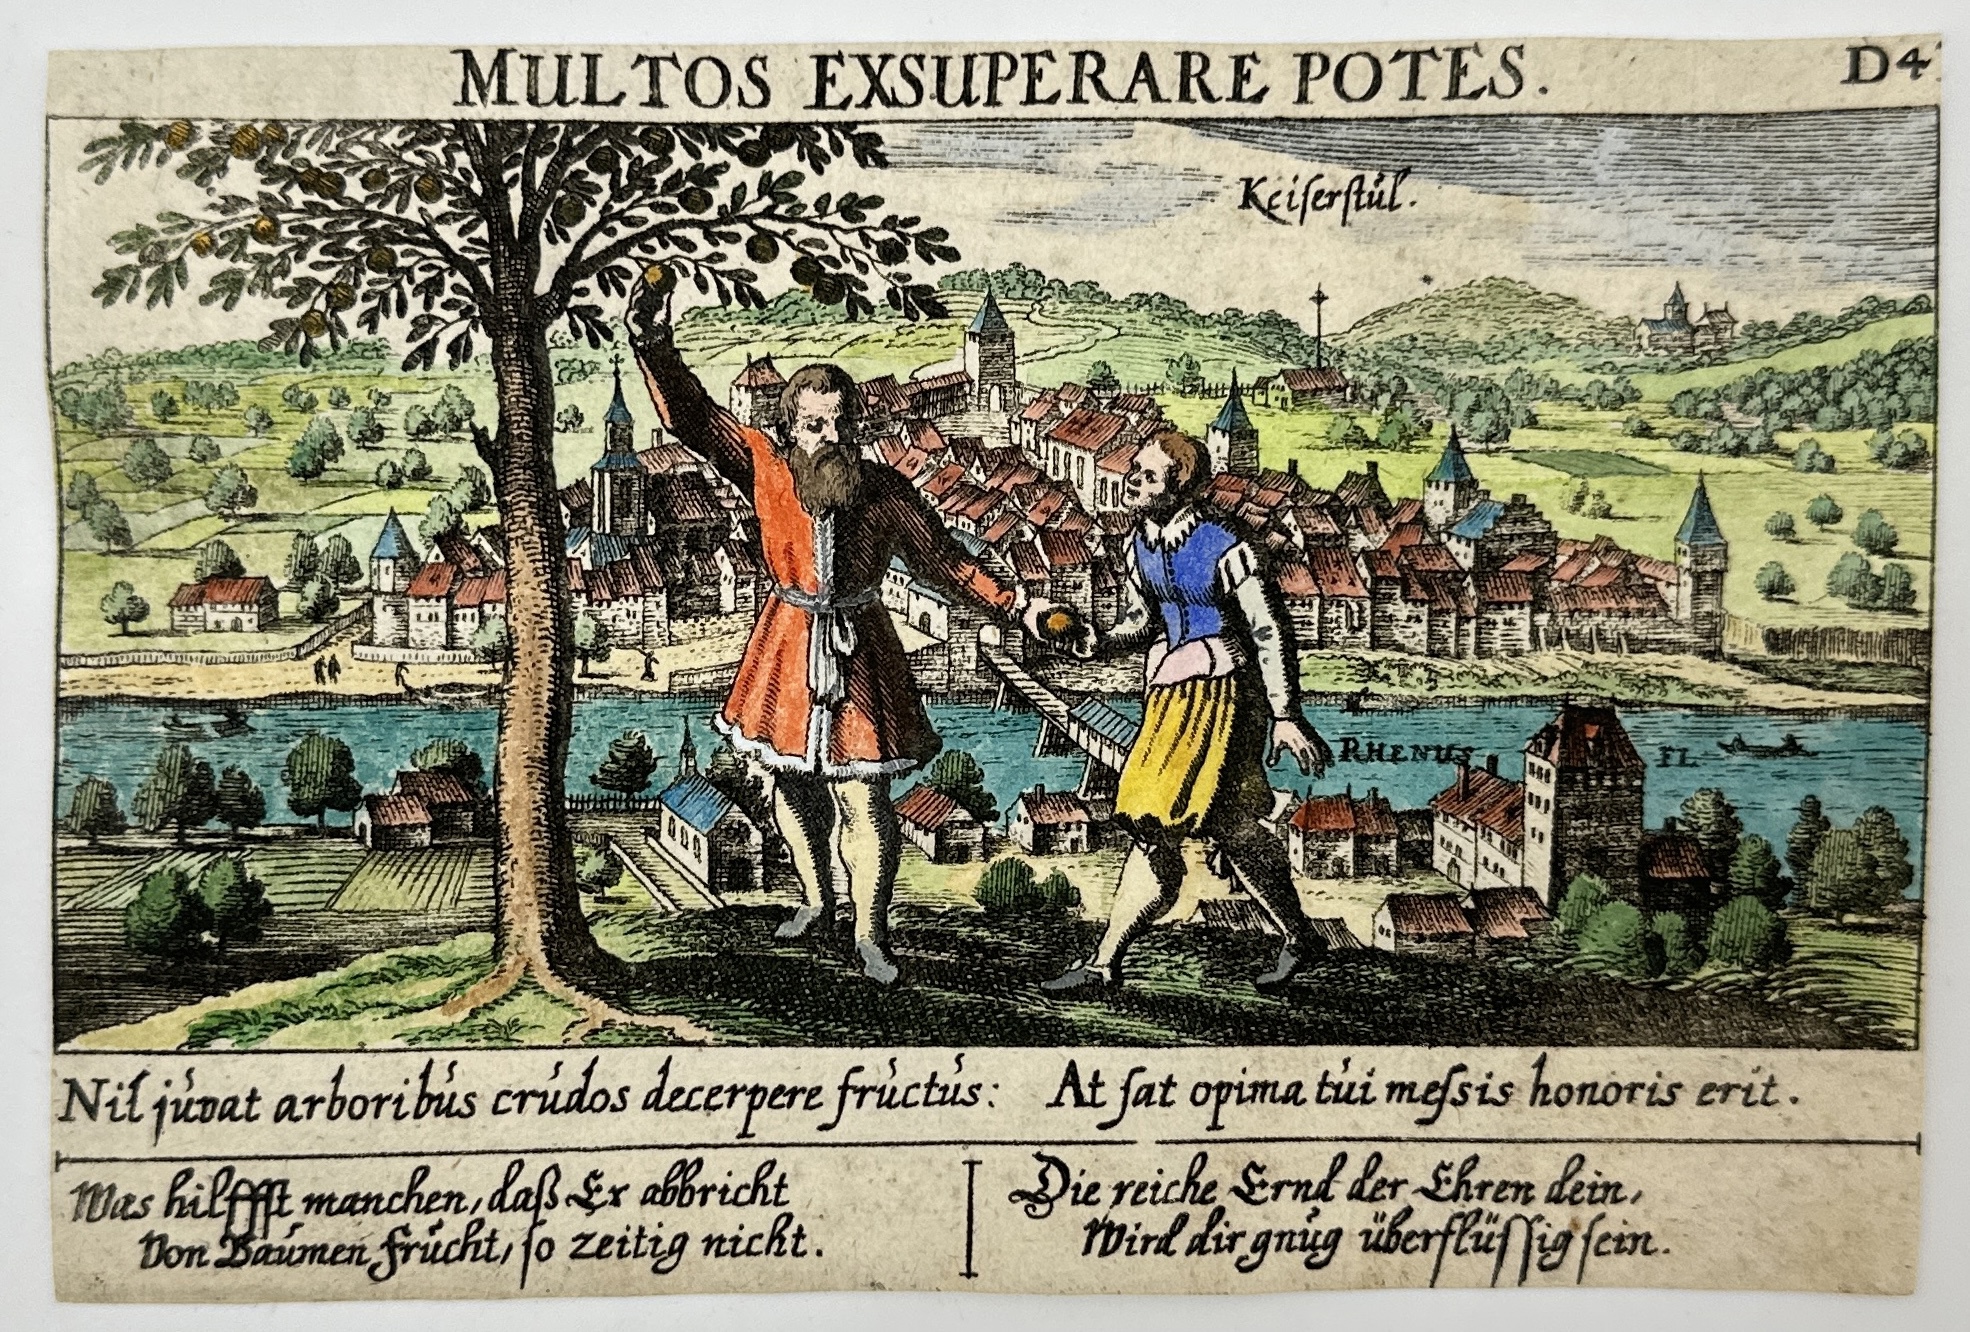 MULTOS EXSUPERARE POTES.
D4
Keiſerſtúl.
RHENUS FL
Nil júvat arboribús crúdos decerpere frúctús: At ſat opima túi meſsis honoris erit.
Was hilffſt manchen, daß Er abbricht
Von Baúmen Frúcht, ſo zeitig nicht.
Die reiche Ernd der Ehren dein,
Wird dir gnúg überflüſſig ſein.